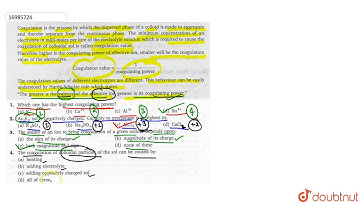 16985724
Coagulation is the process by which the dispersed phase of a colloid is made to aggregate
and thereby separate from the continuous phase. The minimum concentration of an
electrolyte in milli-moles per litre of the electrolyte solution which is required to cause the
coagulation of colloidal sol is called coagulation value.
Therefore higher is the coagulating power of effective ion, smaller will be the coagulation
value of the electrolyte.
Coagulation value ∝ 1/coagulating power
The coagulation values of different electrolytes are different. This behaviour can be easily
understood by Hardy-Schulze rule which states,
"The greater is the valency of the effective ion greater is its coagulating power."
1. Which one has the highest coagulating power?
(b) Ca²⁺ (c) Al³⁺
2. As₂S₃ sol is negatively charged.
(b) Na₃PO₄
3. The ability of an ion to bring coagulation of a given depends upon
(a) the sign of its charge (b) magnitude of its charge
(c) both magnitude and sign of its charge (d) none of these
4. The coagulation of colloidal particles of the sol can be caused by
(a) heating
(b) adding electrolyte
(c) adding oppositely charged sol
(d) all of these
doubtnut